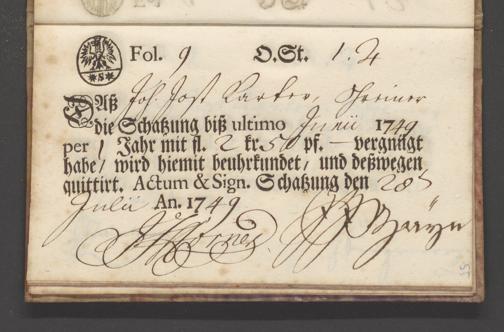 *S*
Fol. 9 O.St. 1. 4
Daß Joh. Jost
die Schatzung biß ultimo Junii 1749
per 1 Jahr mit fl. 2 kr 50 pf. — vergnügt
habe/ wird hiemit beuhrkundet/ und deßwegen
quittirt. Actum & Sign. Schatzung den 28t
Julii An. 1749